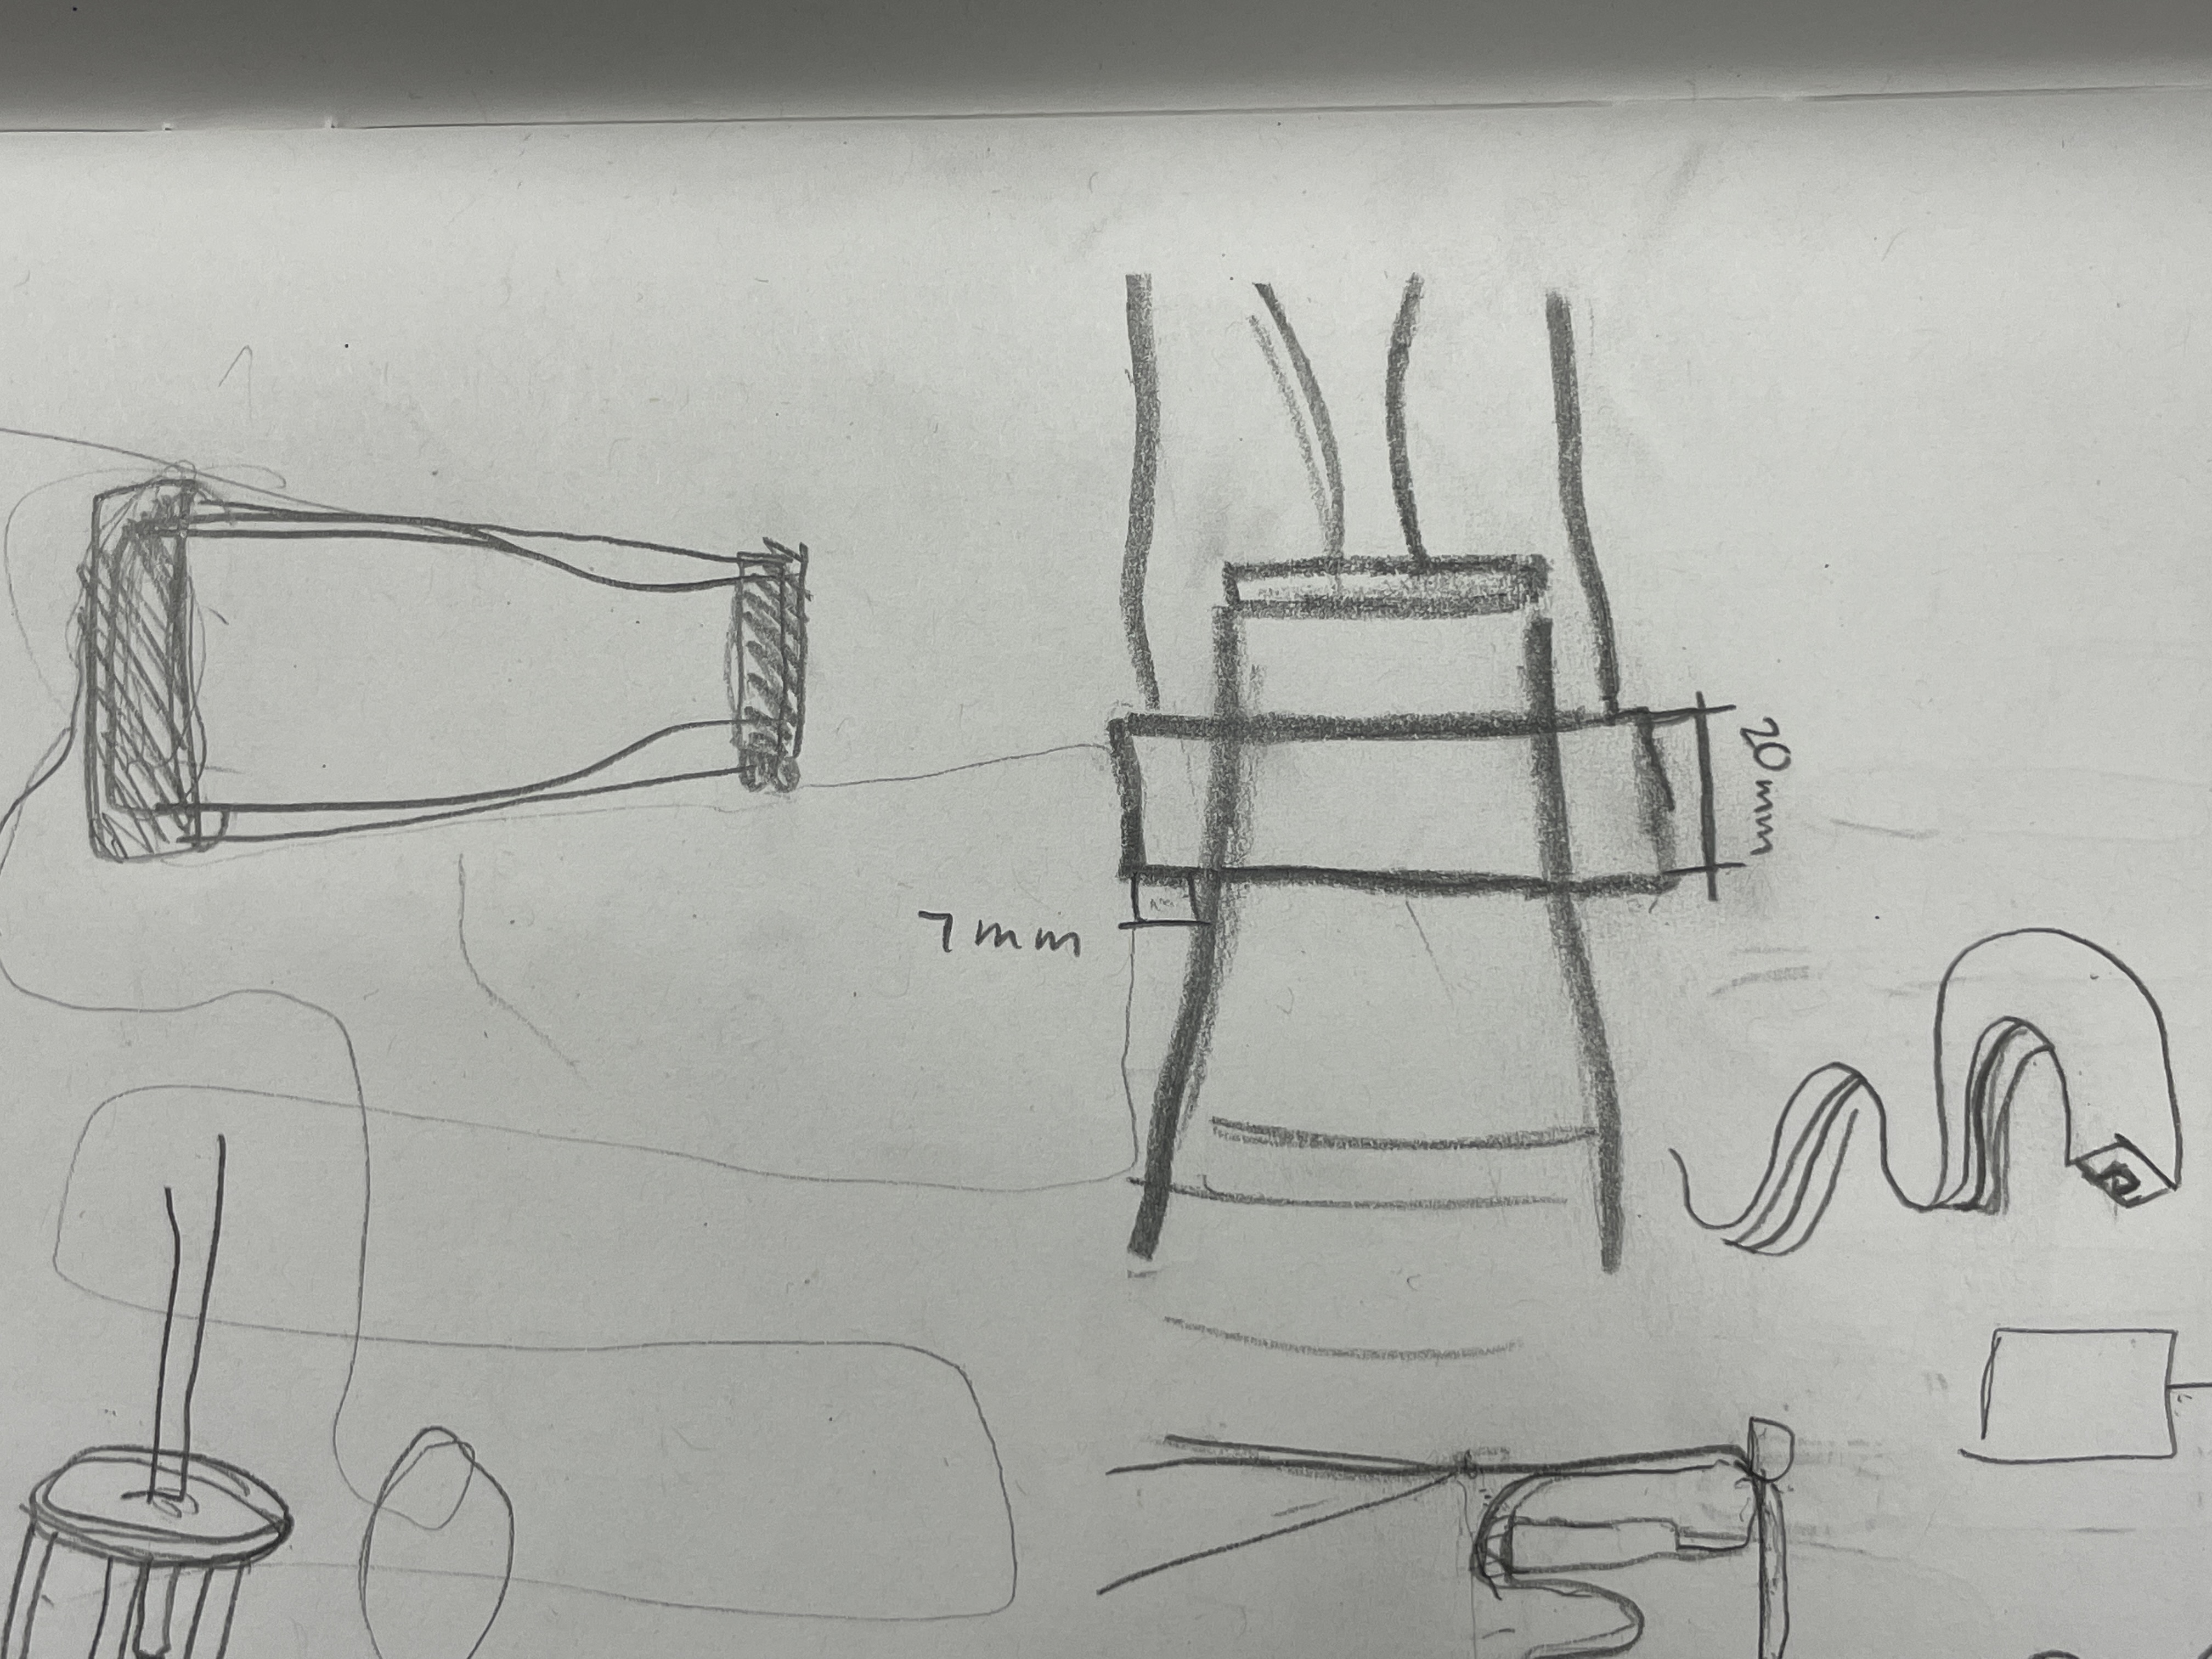 20mm
7mm